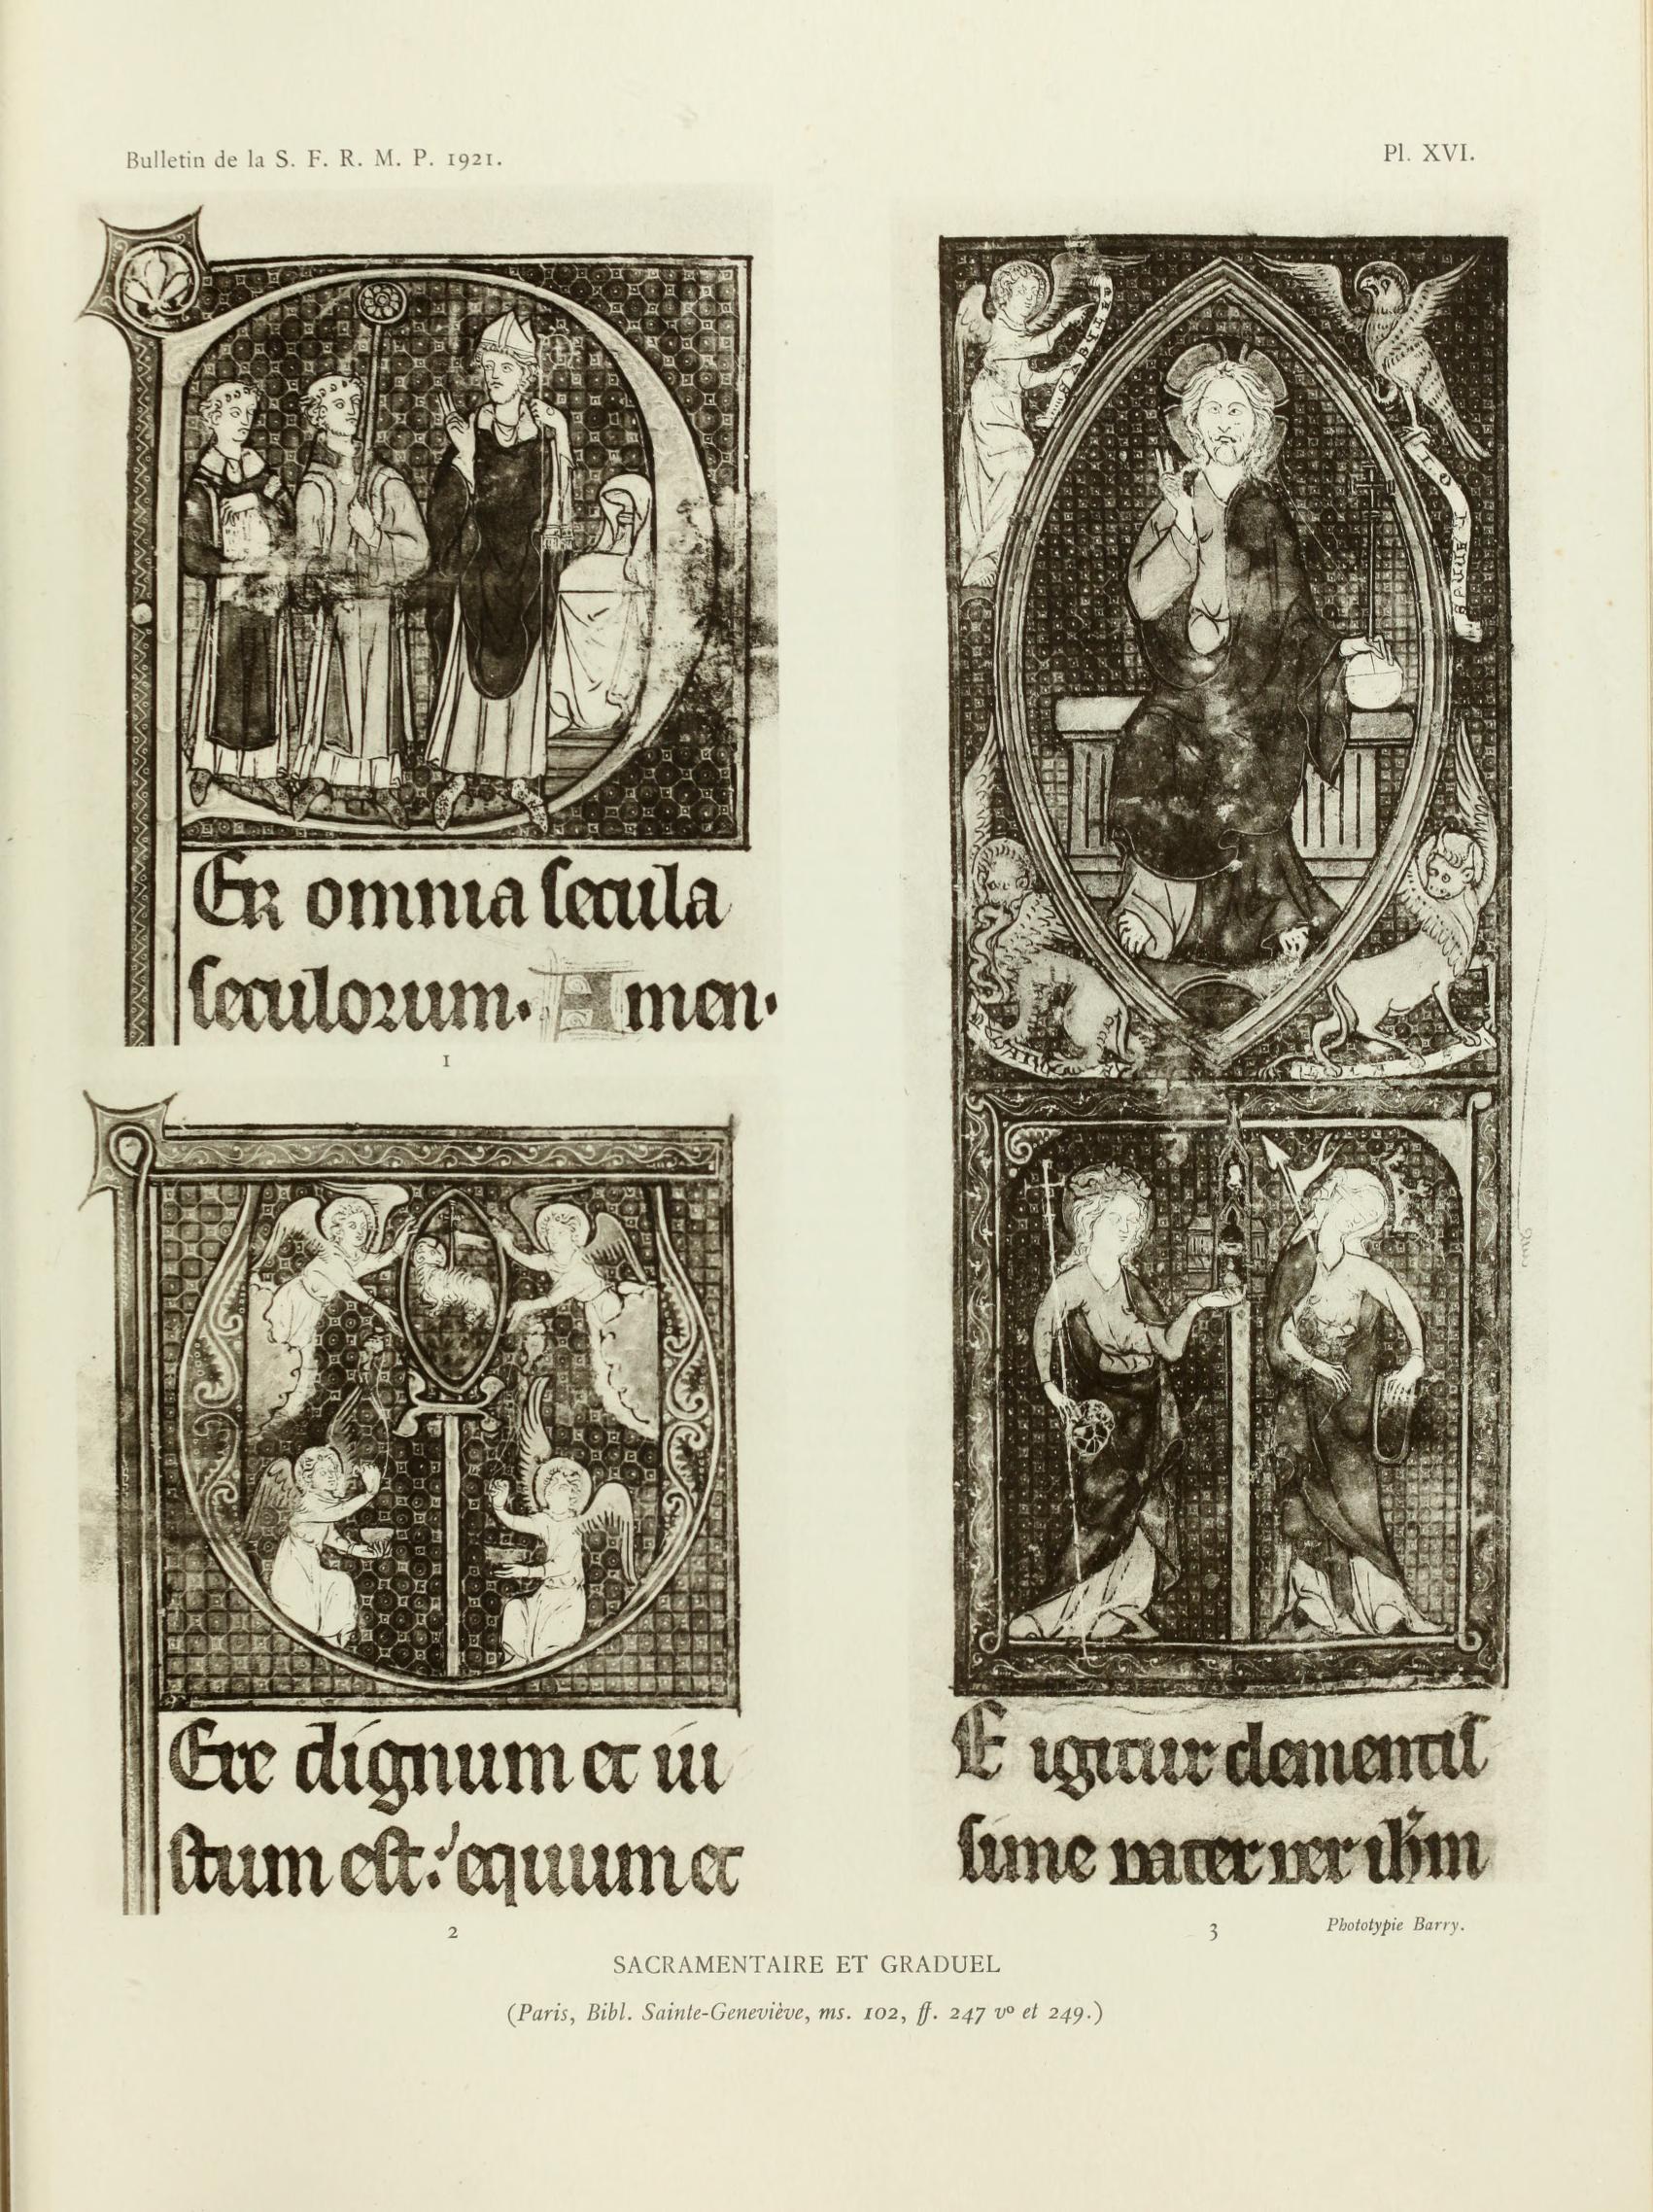 Bulletin de la S. F. R. M. P. 1921.
Pl. XVI.
ER omnia secula
seculorum. Amen.
1
Ere dignum et iu
stum est: equum et
2
E igitur clementis
sime pater per ihm
3
Phototypie Barry.
SACRAMENTAIRE ET GRADUEL
(Paris, Bibl. Sainte-Geneviève, ms. 102, ff. 247 vº et 249.)